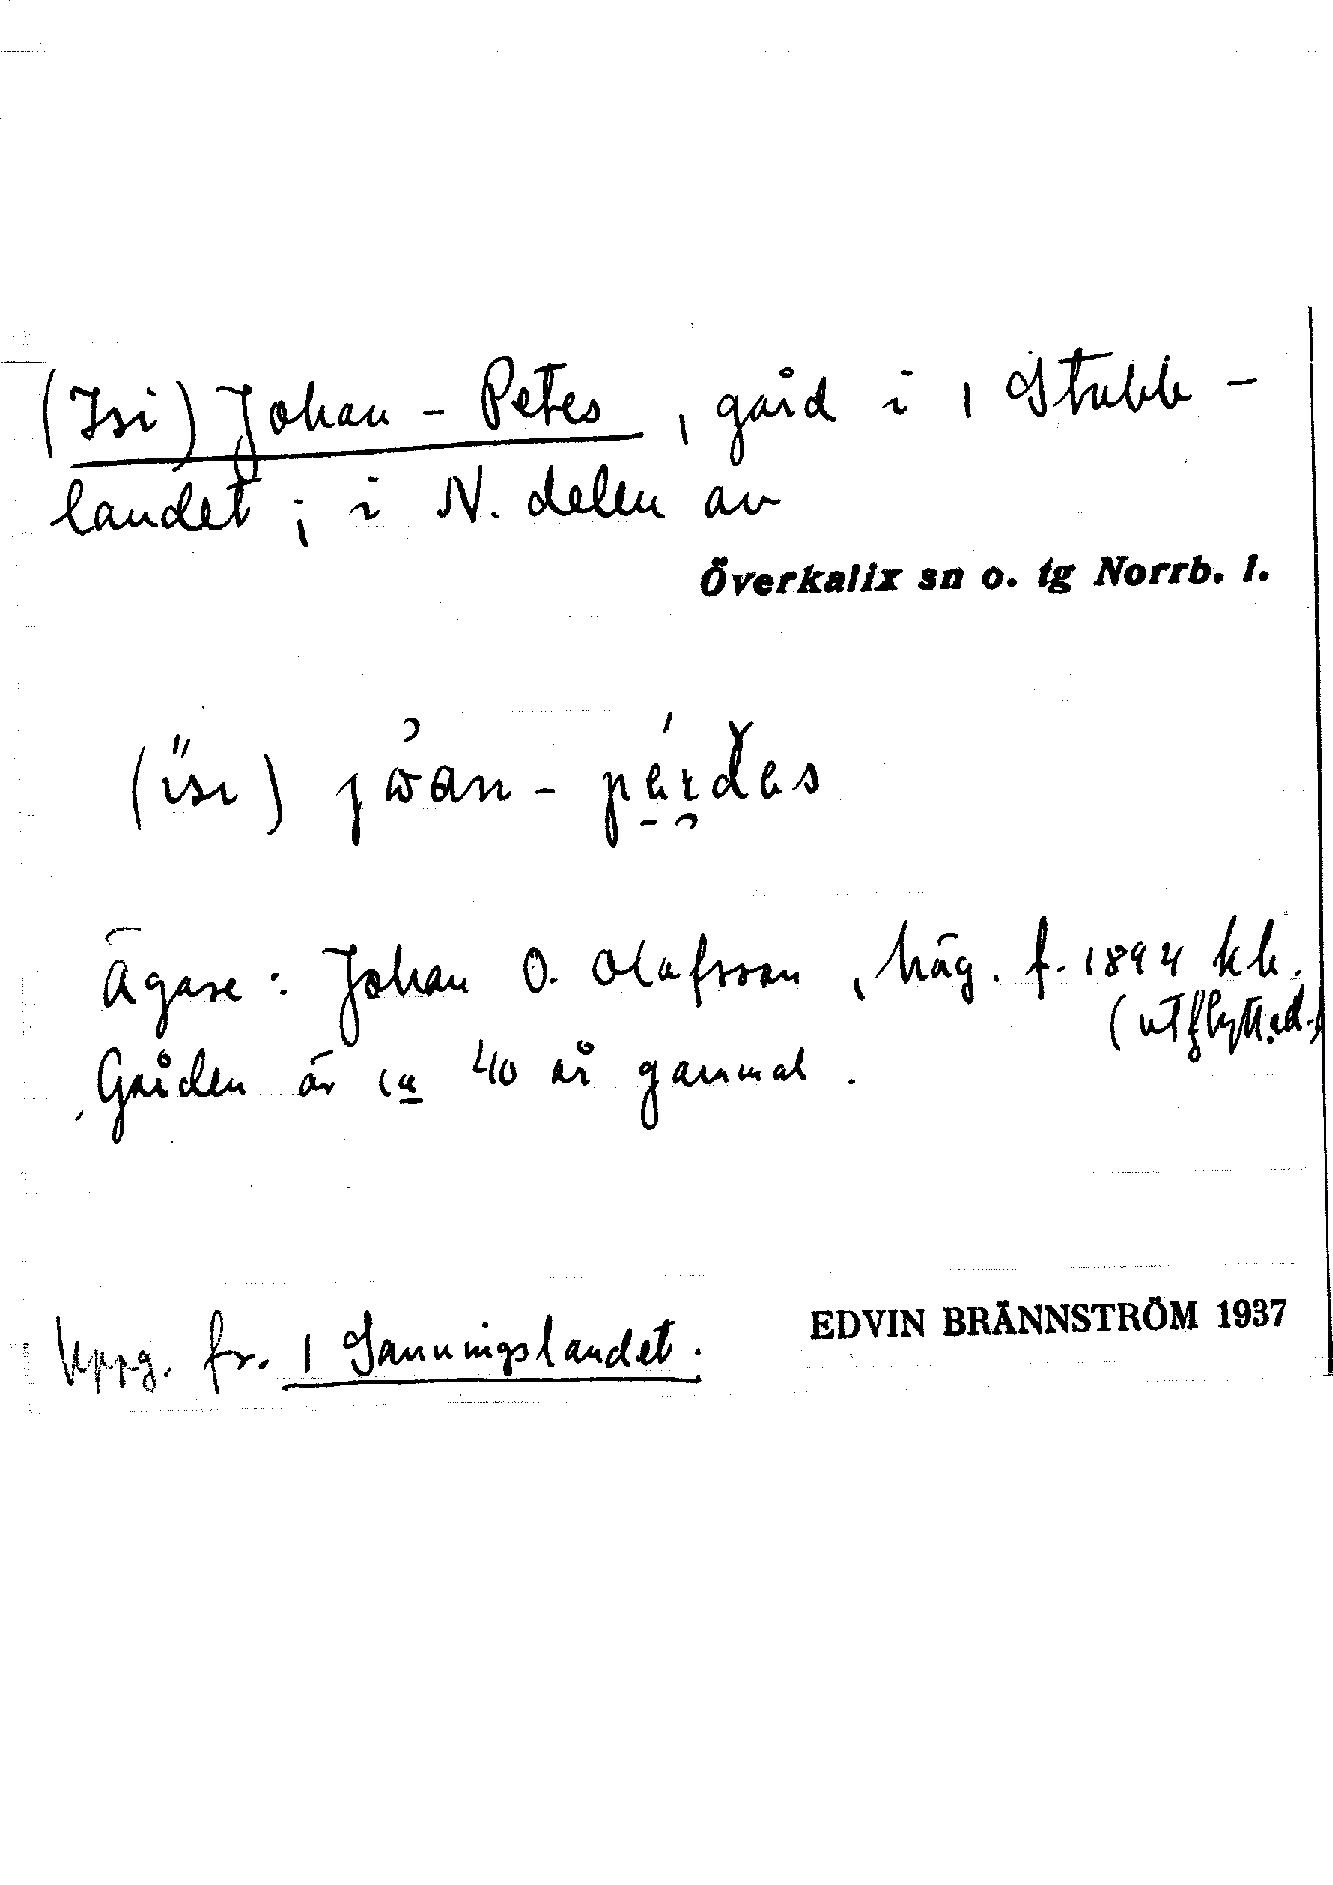 (Isi) Johan-Petes, gård i, Stubb-
landet; i N. delen av
Överkalix sn o. tg Norrb. l.
(ïsɩ) jωan - pérdas
Ägare: Johan O. Olafsson, häg. f. 1894 hh.
(utflyttad.)
Gården är ca 40 år gammal.
Uppg. fr. , Sanningslandet.
EDVIN BRÄNNSTRÖM 1937